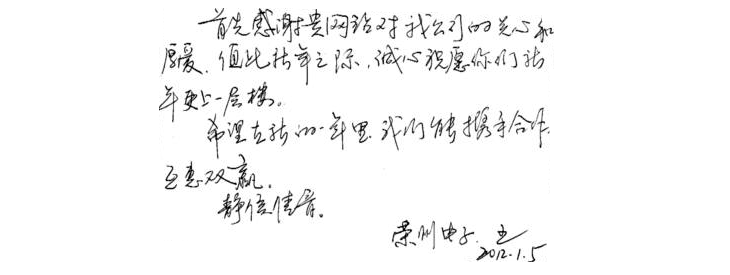 首先感谢贵网站对我公司的关心和
厚爱，值此新年之际，诚心祝愿你们新
年更上一层楼。
希望在新的一年里，我们能携手合作，
互惠双赢。
静候佳音。
荣州电子
2012.1.5